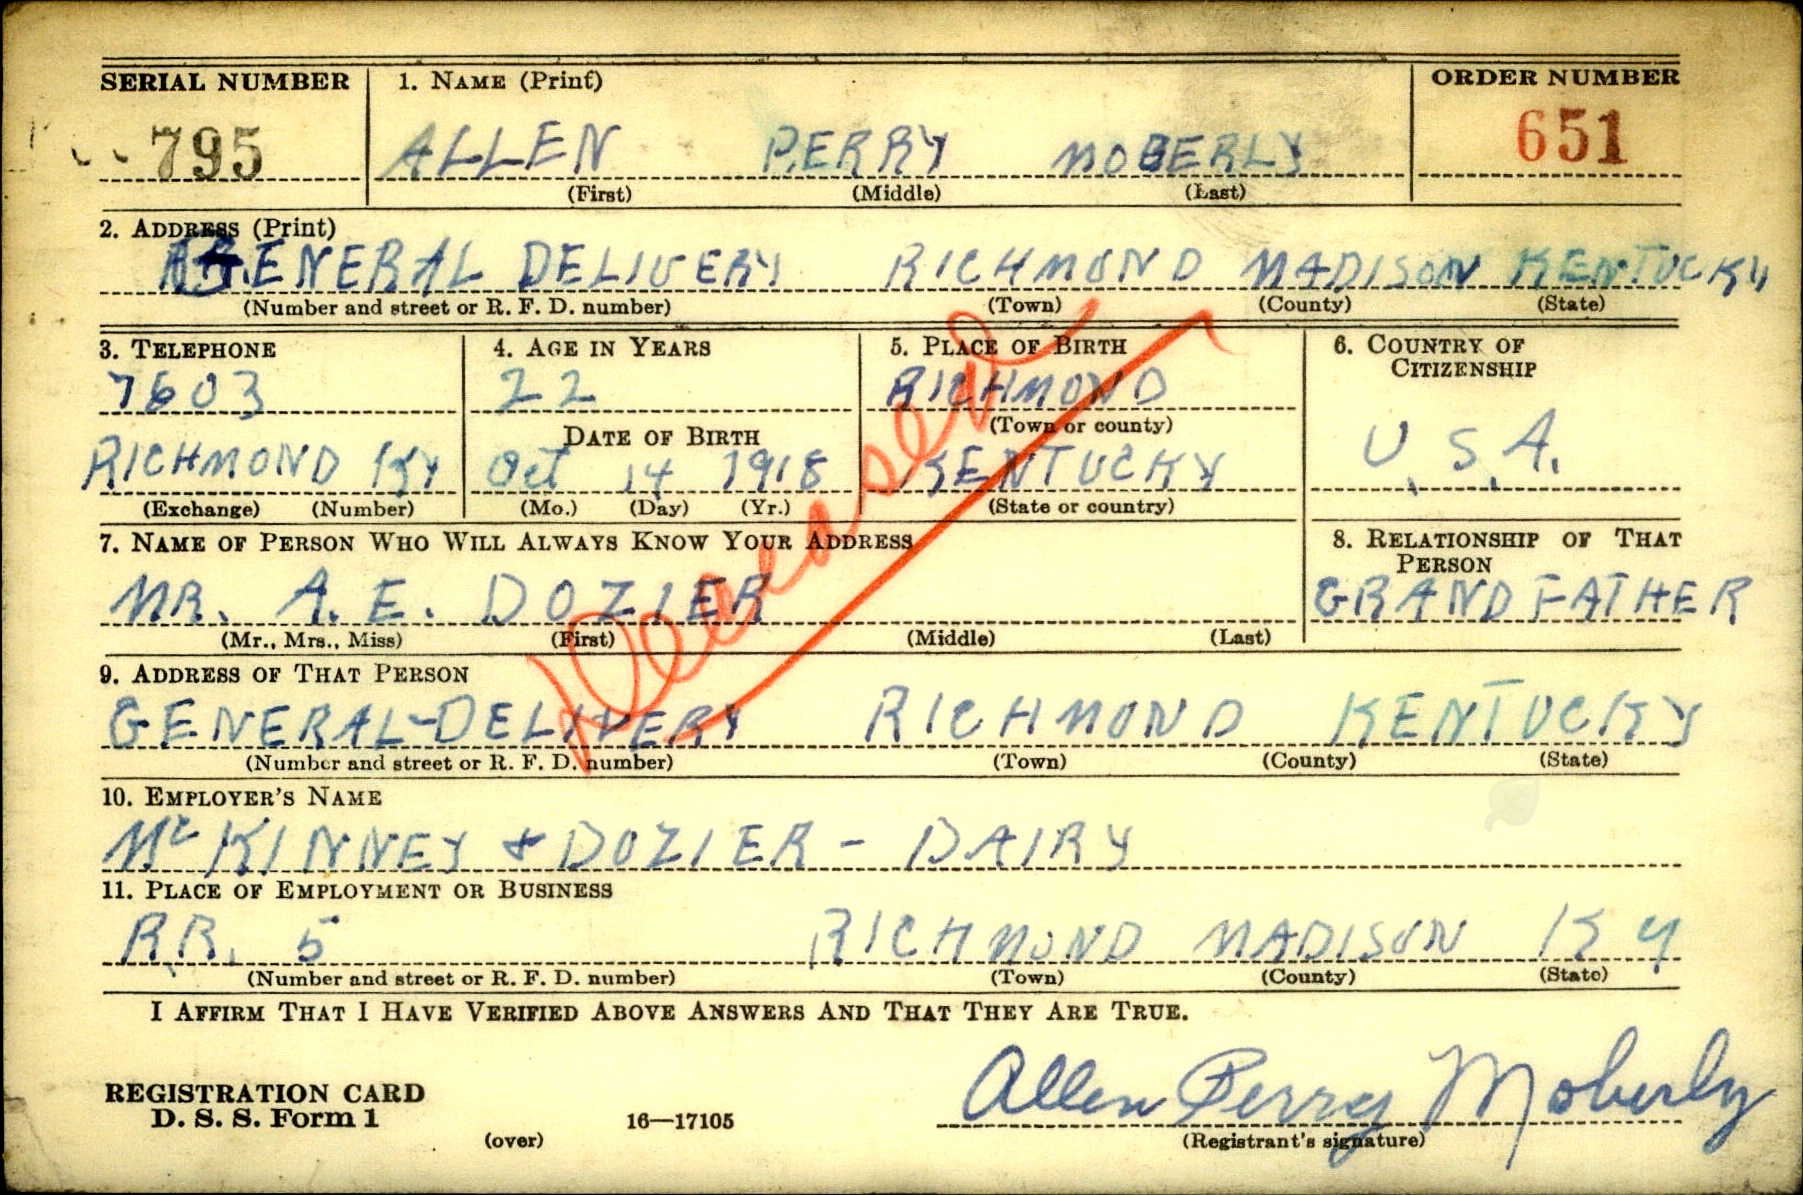 SERIAL NUMBER 1. NAME (Print) ORDER NUMBER
795 ALLEN PERRY MOBERLY 651
(First) (Middle) (Last)
2. ADDRESS (Print)
GENERAL DELIVERY RICHMOND MADISON KENTUCKY
(Number and street or R. F. D. number) (Town) (County) (State)
3. TELEPHONE 4. AGE IN YEARS 5. PLACE OF BIRTH 6. COUNTRY OF CITIZENSHIP
7603 22 RICHMOND
DATE OF BIRTH (Town or county) U.S.A.
RICHMOND KY Oct 14 1918 KENTUCKY
(Exchange) (Number) (Mo.) (Day) (Yr.) (State or country)
7. NAME OF PERSON WHO WILL ALWAYS KNOW YOUR ADDRESS 8. RELATIONSHIP OF THAT PERSON
MR. A. E. DOZIER GRANDFATHER
(Mr., Mrs., Miss) (First) (Middle) (Last)
Deceased
9. ADDRESS OF THAT PERSON
GENERAL-DELIVERY RICHMOND KENTUCKY
(Number and street or R. F. D. number) (Town) (County) (State)
10. EMPLOYER'S NAME
McKINNEY & DOZIER - DAIRY
11. PLACE OF EMPLOYMENT OR BUSINESS
R.R. 5 RICHMOND MADISON KY
(Number and street or R. F. D. number) (Town) (County) (State)
I AFFIRM THAT I HAVE VERIFIED ABOVE ANSWERS AND THAT THEY ARE TRUE.
Allen Perry Moberly
REGISTRATION CARD
D. S. S. Form 1 16—17105
(over) (Registrant's signature)